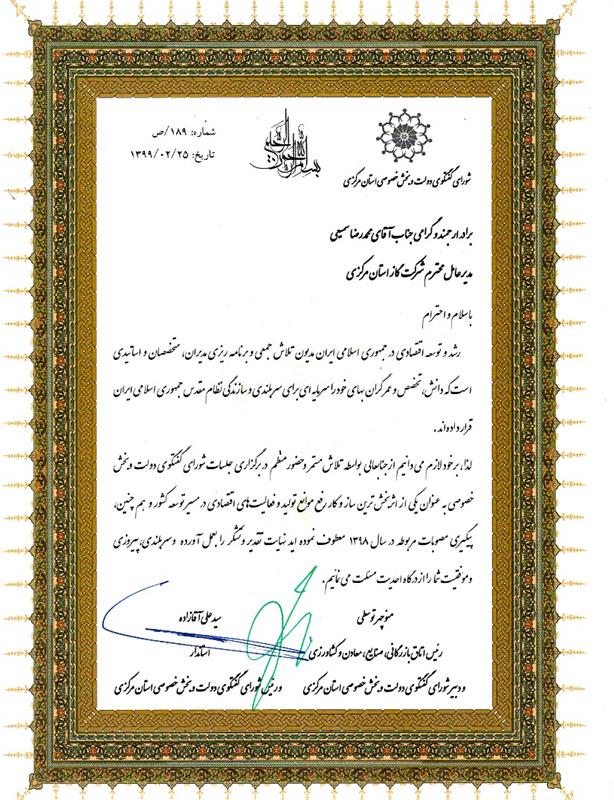 شماره: ۱۸۹/ص
تاریخ: ۱۳۹۹/۰۲/۲۵
بسم الله الرحمن الرحیم
شورای گفتگوی دولت و بخش خصوصی استان مرکزی
برادر ارجمند و گرامی جناب آقای محمدرضا سمیعی
مدیرعامل محترم شرکت گاز استان مرکزی
باسلام و احترام
رشد و توسعه اقتصادی در جمهوری اسلامی ایران مدیون تلاش جمعی و برنامه ریزی مدیران، متخصصان و اساتیدی
است که دانش، تخصص و عمر گران بهای خود را سرمایه ای برای سربلندی و سازندگی نظام مقدس جمهوری اسلامی ایران
قرار داده‌اند.
لذا، برخود لازم می دانیم از جنابعالی بواسطه تلاش مستمر و حضور منظم در برگزاری جلسات شورای گفتگوی دولت و بخش
خصوصی به عنوان یکی از اثربخش ترین ساز و کار رفع موانع تولید و فعالیت‌های اقتصادی در مسیر توسعه کشور و هم چنین،
پیگیری مصوبات مربوطه در سال ۱۳۹۸ معطوف نموده اید نهایت تقدیر و تشکر را بعمل آورده و سربلندی، پیروزی
و موفقیت شما را از درگاه احدیت مسئلت می نمائیم.
منوچهر توسلی
رئیس اتاق بازرگانی، صنایع، معادن و کشاورزی
و دبیر شورای گفتگوی دولت و بخش خصوصی استان مرکزی
سید علی آقازاده
استاندار
و رئیس شورای گفتگوی دولت و بخش خصوصی استان مرکزی